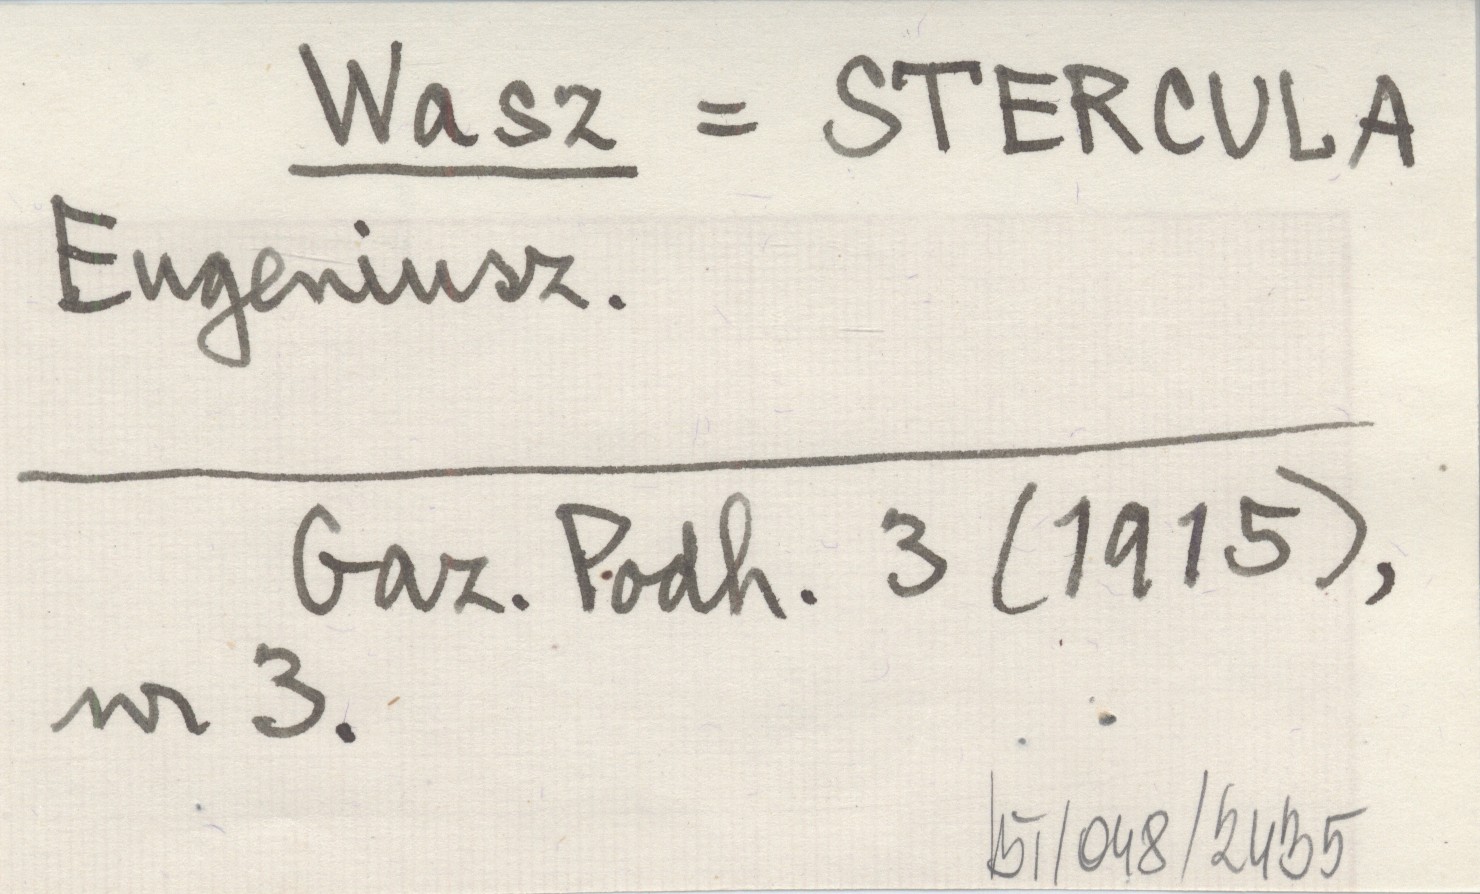 Wasz = STERCULA
Eugeniusz.
Gaz. Podh. 3 (1915),
nr 3.